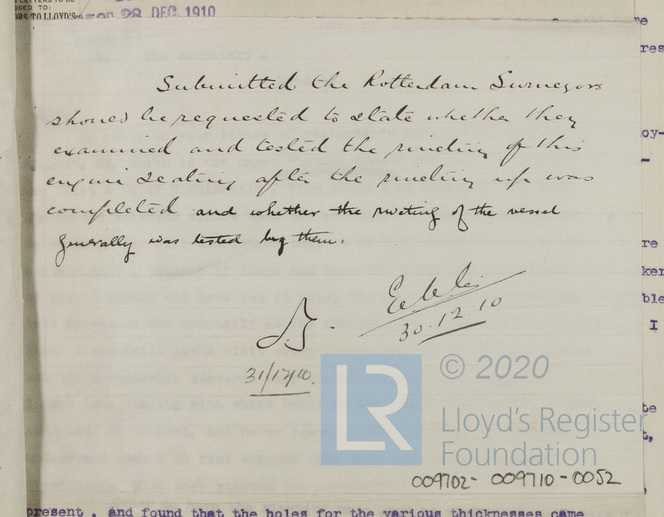 28 DEC 1910
Submitted the Rotterdam Surveyors
should be requested to state whether they
examined and tested the riveting of this
engine seating after the riveting up was
completed and whether the riveting of the vessel
generally was tested by them.
30.12.10
31/12/10.
LR
© 2020
Lloyd's Register
Foundation
009702- 009710-0052
present, and found that the holes for the various thicknesses came